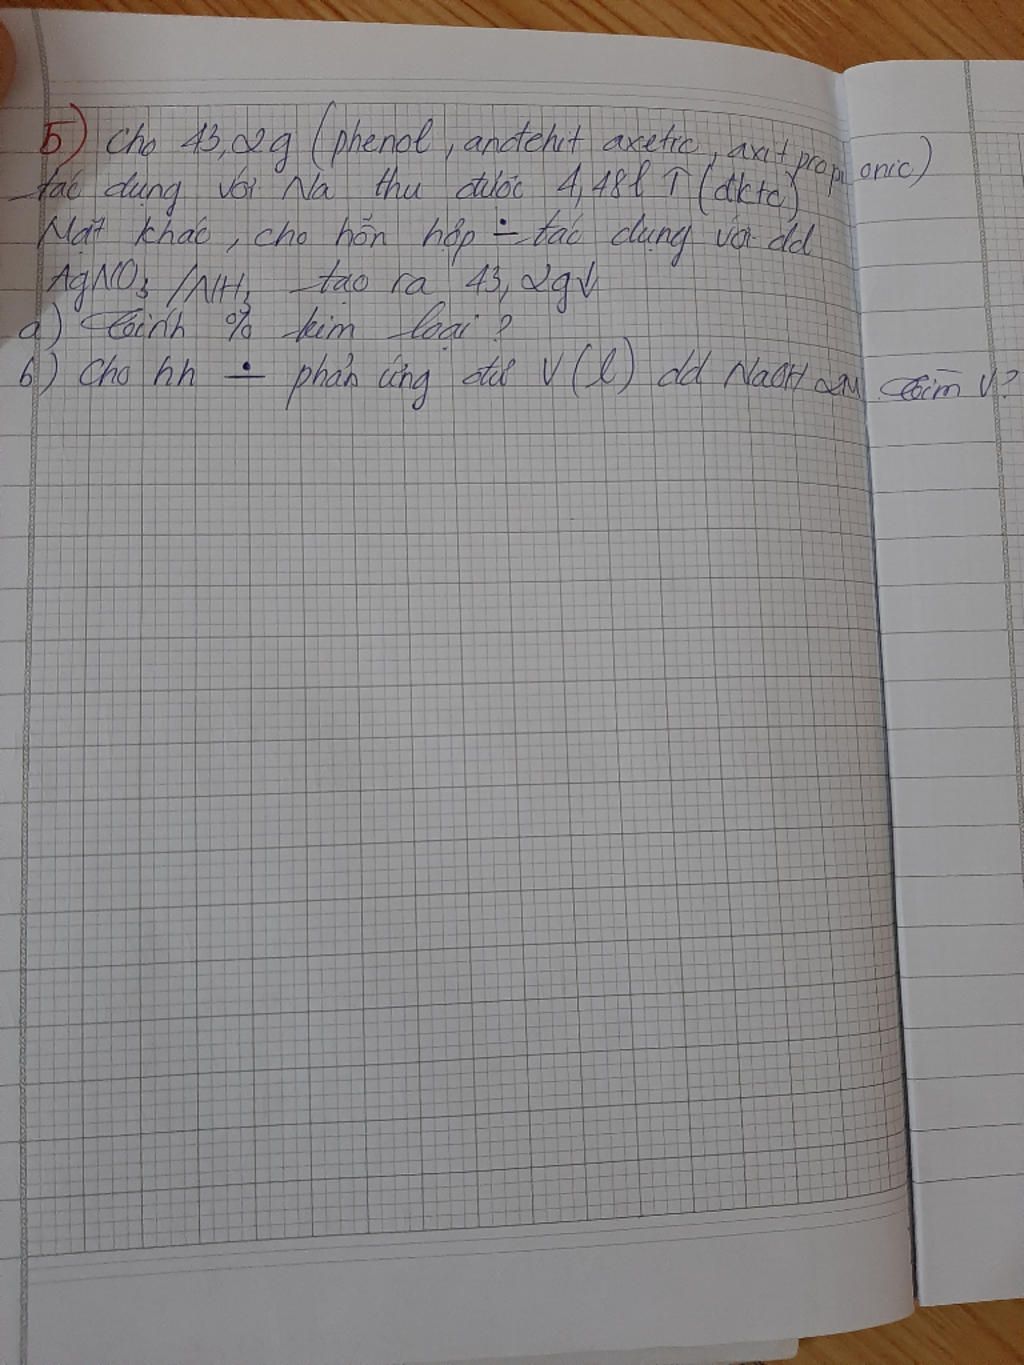 5) Cho 43,2g (phenol, anđehit axetic, axit propionic)
tác dụng với Na thu được 4,48l ↑ (đktc)
Mặt khác, cho hỗn hợp ∸ tác dụng với dd
AgNO3 /NH3 tạo ra 43,2g↓
a) Tính % kim loại?
b) Cho hh ∸ phản ứng đủ V(l) dd NaOH 2M Tìm V?